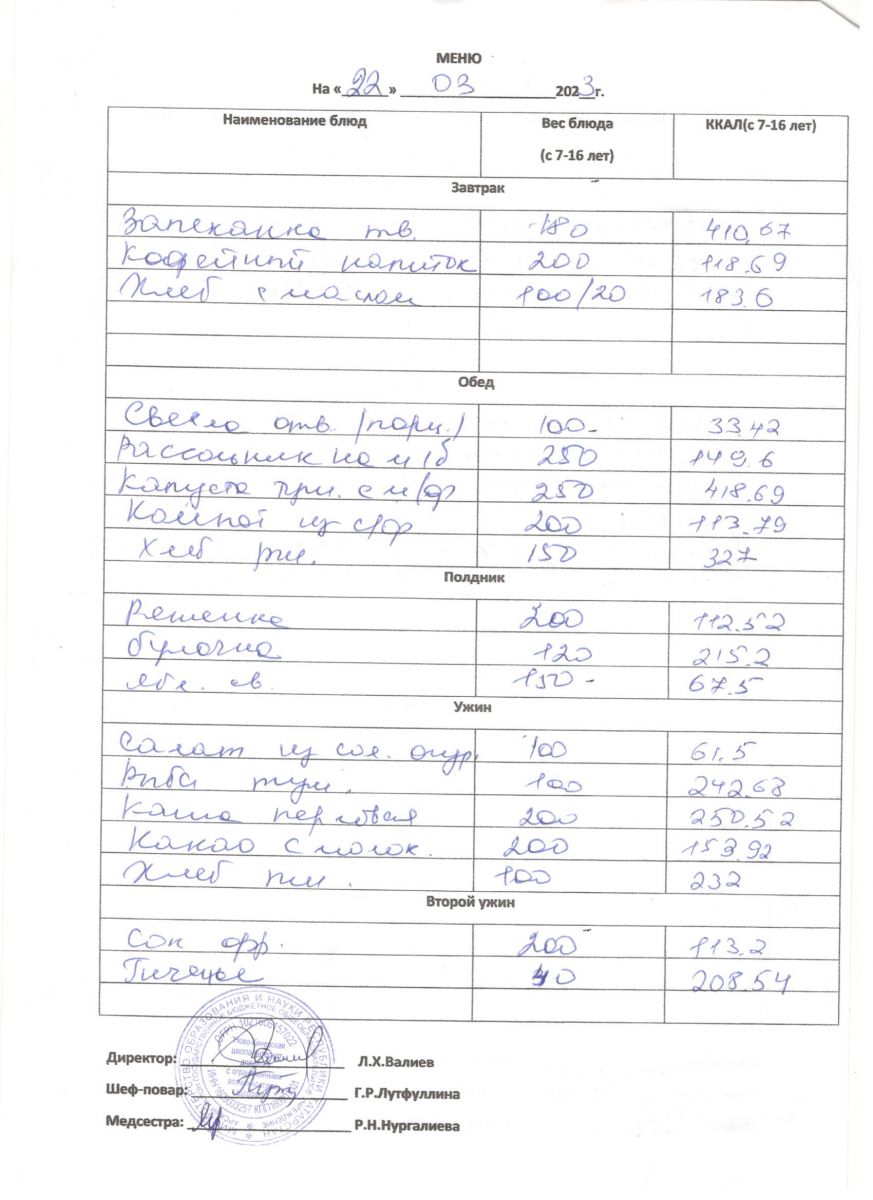 МЕНЮ
На «22» 03 2023г.
Наименование блюд Вес блюда (с 7-16 лет) ККАЛ(с 7-16 лет)
Завтрак
Запеканка тв. 180 410,67
Кофейный напиток 200 118.69
Хлеб с маслом 100/20 183.6
Обед
Свекла отв. (порц.) 100 33.42
Рассольник на м/б 250 149.6
Капуста туш. с м/фр 250 418.69
Компот из с/фр 200 113.79
Хлеб рж. 150 327
Полдник
Ряженка 200 112.52
булочка 120 215.2
ябл. св. 150 67.5
Ужин
Салат из сол. огур. 100 61.5
Рыба туш. 100 242.68
Каша перловая 200 250.52
Какао с молок. 200 153.92
Хлеб пш. 100 232
Второй ужин
Сок фр. 200 113.2
Печенье 40 208.54
Директор: Л.Х.Валиев
Шеф-повар: Г.Р.Лутфуллина
Медсестра: Р.Н.Нургалиева